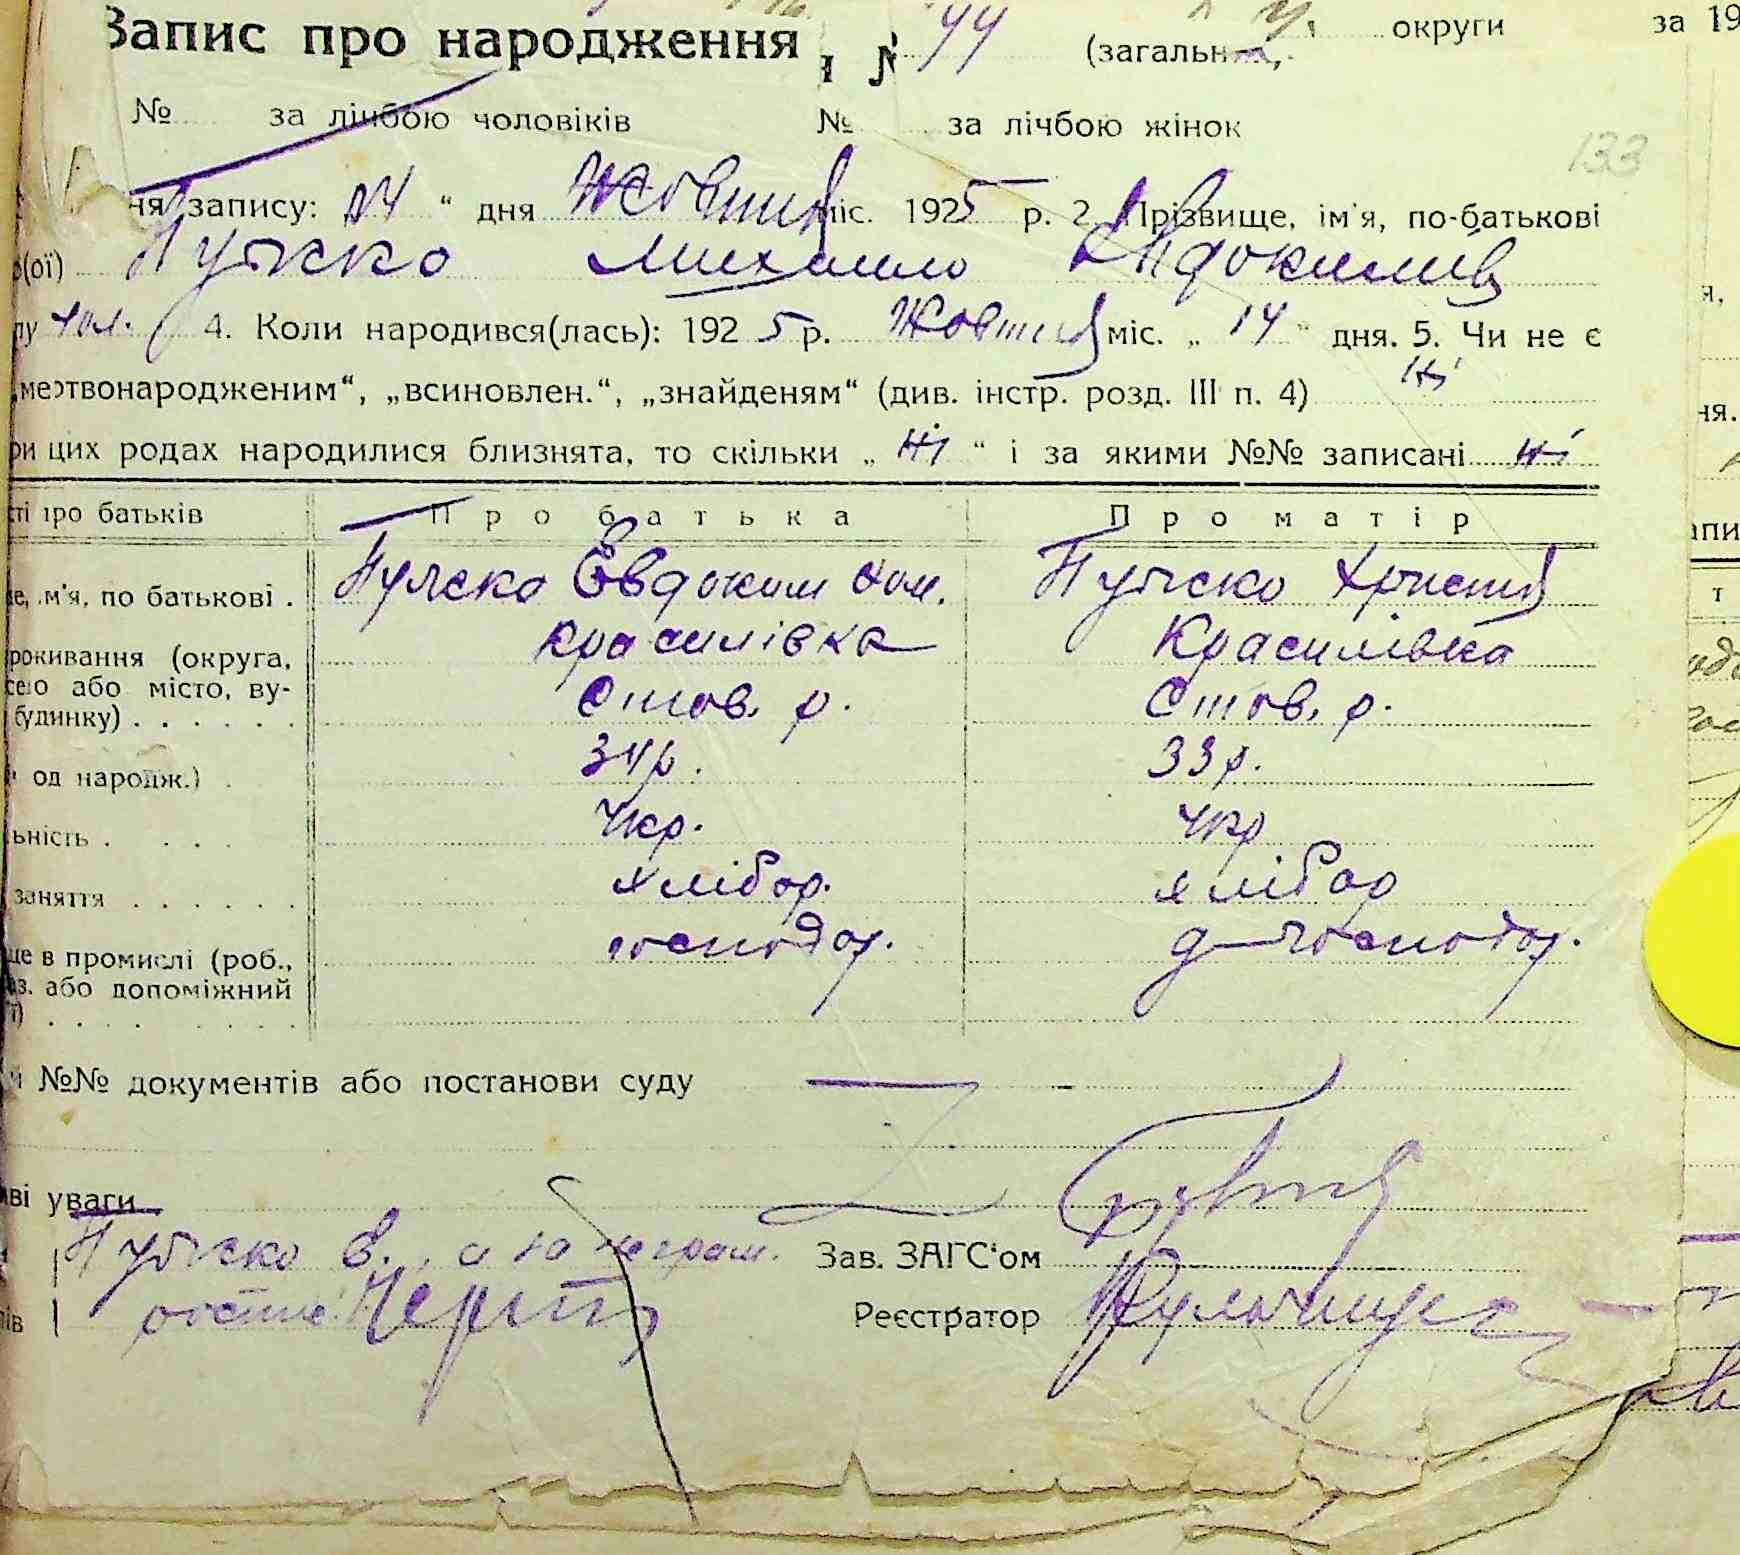 Запис про народження № 44 (загальн. округи за 19
№ за лічбою чоловіків № за лічбою жінок
133
ня запису: 14 “ дня Жовтня міс. 1925 р. 2. Прізвище, ім'я, по-батькові
(ої) Путско Михайло Овдокимів
чол. 4. Коли народився(лась): 1925 р. Жовтня міс. „ 14 “ дня. 5. Чи не є
мертвонародженим“, „всиновлен.“, „знайденям“ (див. інстр. розд. III п. 4) ні
ри цих родах народилися близнята, то скільки „ ні “ і за якими №№ записані ні
ті про батьків Про батька Про матір
е, м'я, по батькові . Путско Євдоким Путско Христя
рокивання (округа, Красилівка Красилівка
село або місто, ву- Став. р. Став. р.
будинку) . . . . . .
од народж.) . 34 р. 33 р.
ьність . . . . укр. укр
заняття . . . . . . хлібор. хлібор
ще в промислі (роб., господар. д господар.
аз. або допоміжний
ї) . . . . . . . .
№№ документів або постанови суду —
ві уваги
Путско Є., а за неграм. Зав. ЗАГС'ом
Реєстратор